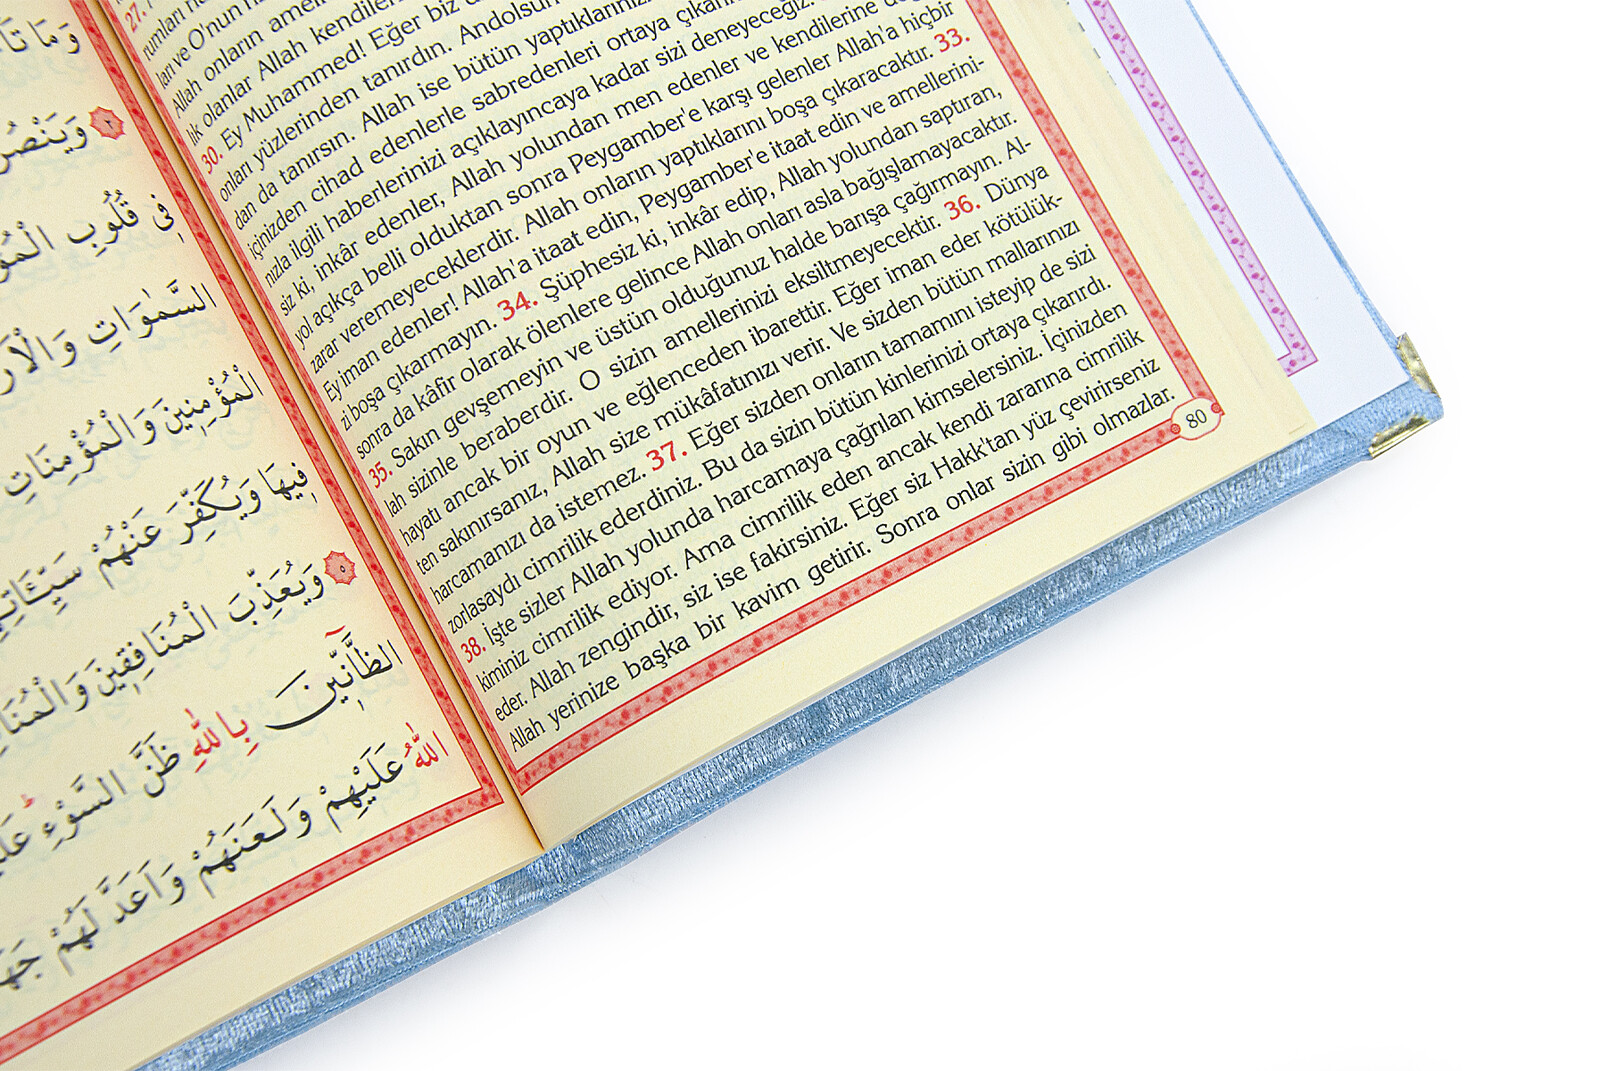 وَمَا
وَيَنْصُرَ
فِي قُلُوبِ
السَّمٰوَاتِ وَالْاَرْ
الْمُؤْمِنِينَ وَالْمُؤْمِنَاتِ
فِيهَا وَيُكَفِّرَ عَنْهُمْ سَيِّـَٔاتِ
٥ وَيُعَذِّبَ الْمُنَافِقِينَ وَالْمُنَا
الظَّٓانِّينَ بِاللّٰهِ ظَنَّ السَّوْءِ
اللّٰهُ عَلَيْهِمْ وَلَعَنَهُمْ وَاَعَدَّ لَهُمْ
27.
rumları
ları ve O'nun
Allah onların
lık olanlar Allah
30. Ey Muhammed! Eğer biz
onları yüzlerinden tanırdın. Andolsun
dan da tanırsın. Allah ise bütün
içinizden cihad edenlerle sabredenleri ortaya
nızla ilgili haberlerinizi açıklayıncaya kadar sizi deneyeceğiz.
siz ki, inkâr edenler, Allah yolundan men edenler ve kendilerine
yol açıkça belli olduktan sonra Peygamber'e karşı gelenler Allah'a hiçbir
zarar veremeyeceklerdir. Allah onların yaptıklarını boşa çıkaracaktır. 33.
Ey iman edenler! Allah'a itaat edin, Peygamber'e itaat edin ve amellerini-
zi boşa çıkarmayın. 34. Şüphesiz ki, inkâr edip, Allah yolundan saptıran,
sonra da kâfir olarak ölenlere gelince Allah onları asla bağışlamayacaktır.
35. Sakın gevşemeyin ve üstün olduğunuz halde barışa çağırmayın. Al-
lah sizinle beraberdir. O sizin amellerinizi eksiltmeyecektir. 36. Dünya
hayatı ancak bir oyun ve eğlenceden ibarettir. Eğer iman eder kötülük-
ten sakınırsanız, Allah size mükâfatınızı verir. Ve sizden bütün mallarınızı
harcamanızı da istemez. 37. Eğer sizden onların tamamını isteyip de sizi
zorlasaydı cimrilik ederdiniz. Bu da sizin bütün kinlerinizi ortaya çıkarırdı.
38. İşte sizler Allah yolunda harcamaya çağrılan kimselersiniz. İçinizden
kiminiz cimrilik ediyor. Ama cimrilik eden ancak kendi zararına cimrilik
eder. Allah zengindir, siz ise fakirsiniz. Eğer siz Hakk'tan yüz çevirirseniz
Allah yerinize başka bir kavim getirir. Sonra onlar sizin gibi olmazlar.
80